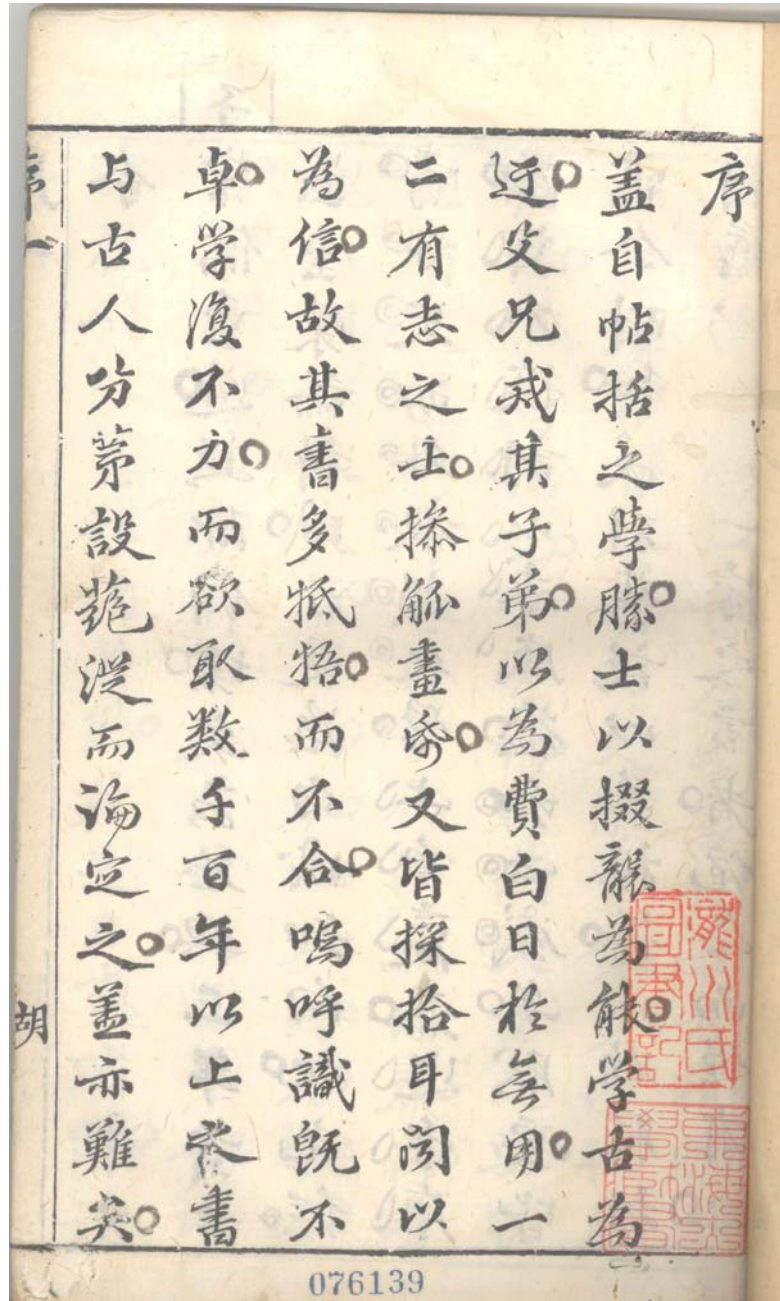 序
盖自帖括之學勝士以掇襲為能学古為
迂父兄戒其子弟以為費白日於無用一
二有志之士操觚畫帋又皆採拾耳闻以
為信故其書多牴牾而不合嗚呼識既不
卓学復不力而欲取数千百年以上書
与古人分茅設蕝従而論定之盖亦難矣
序一
胡
瀧川氏圖書記
076139